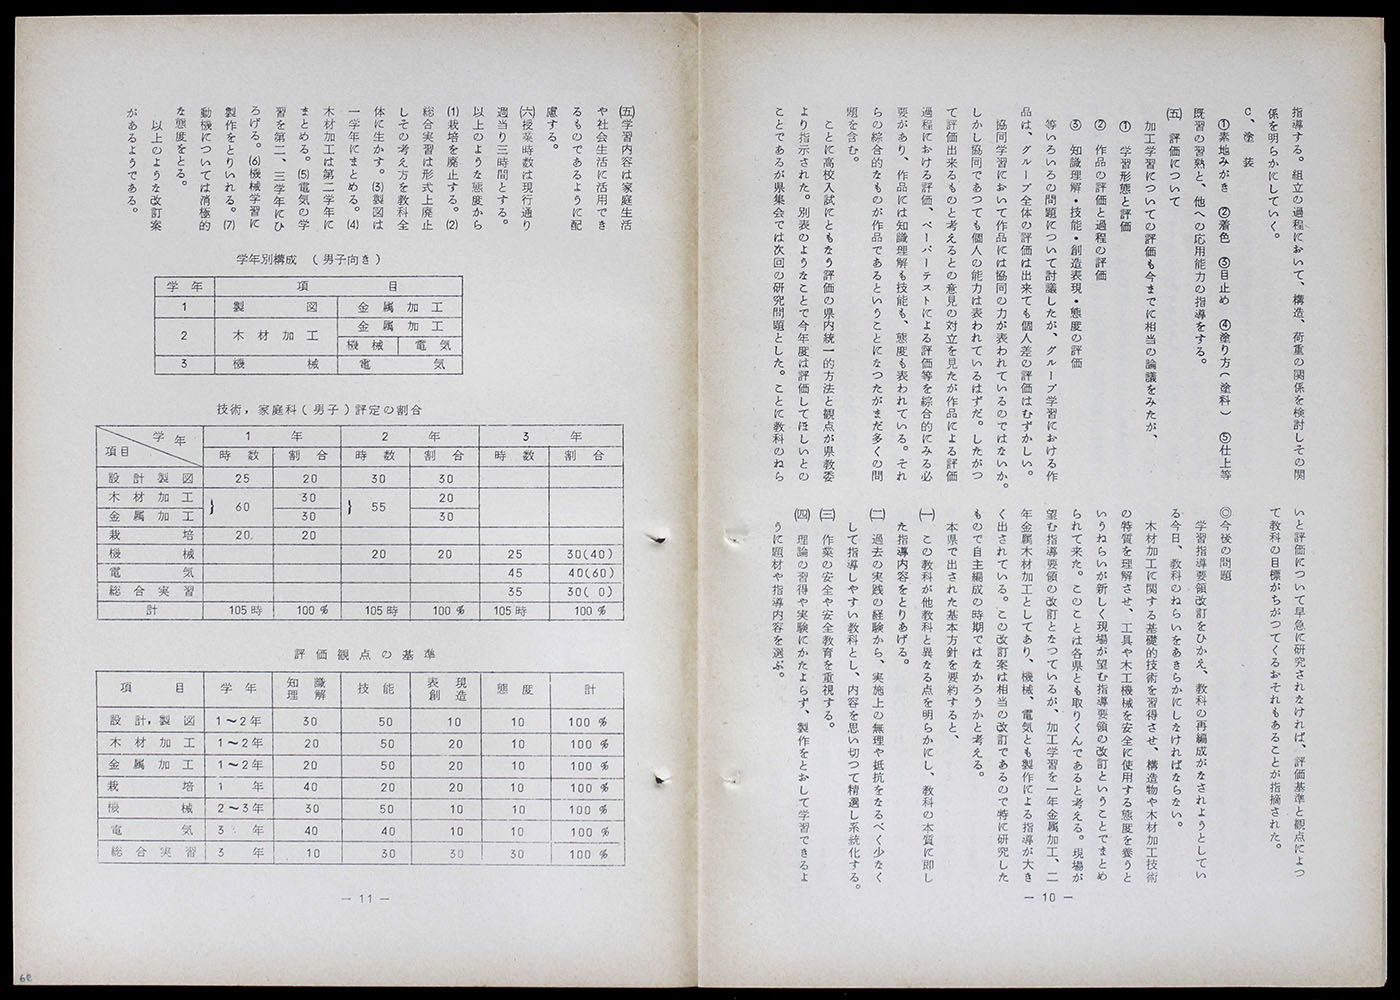 指導する。組立の過程において、構造、荷重の関係を検討しその関
係を明らかにしていく。
C、塗 装
①素地みがき ②着色 ③目止め ④塗り方(塗料) ⑤仕上等
既習の習熟と、他への応用能力の指導をする。
㈤ 評価について
加工学習についての評価も今までに相当の論議をみたが、
① 学習形態と評価
② 作品の評価と過程の評価
③ 知識理解・技能・創造表現・態度の評価
等いろいろの問題について討議したが、グループ学習における作
品は、グループ全体の評価は出来ても個人差の評価はむずかしい。
協同学習において作品には協同の力が表われているのではないか。
しかし協同であつても個人の能力は表われているはずだ。したがつ
て評価出来るものと考えるとの意見の対立を見たが作品による評価
過程における評価、ペーパーテストによる評価等を綜合的にみる必
要があり、作品には知識理解も技能も、態度も表われている。それ
らの綜合的なものが作品であるということになつたがまだ多くの問
題を含む。
ことに高校入試にともなう評価の県内統一的方法と観点が県教委
より指示された。別表のようなことで今年度は評価してほしいとの
ことであるが県集会では次回の研究問題とした。ことに教科のねら
いと評価について早急に研究されなければ、評価基準と観点によつ
て教科の目標がちがつてくるおそれもあることが指摘された。
◎今後の問題
学習指導要領改訂をひかえ、教科の再編成がなされようとしてい
る今日、教科のねらいをあきらかにしなければならない。
木材加工に関する基礎的技術を習得させ、構造物や木材加工技術
の特質を理解させ、工具や木工機械を安全に使用する態度を養うと
いうねらいが新しく現場が望む指導要領の改訂ということでまとめ
られて来た。このことは各県とも取りくんであると考える。現場が
望む指導要領の改訂となつているが、加工学習を一年金属加工、二
年金属木材加工としてあり、機械、電気とも製作による指導が大き
く出されている。この改訂案は相当の改訂であるので特に研究した
もので自主編成の時期ではなかろうかと考える。
本県で出された基本方針を要約すると、
㈠ この教科が他教科と異なる点を明らかにし、教科の本質に即し
た指導内容をとりあげる。
㈡ 過去の実践の経験から、実施上の無理や抵抗をなるべく少なく
して指導しやすい教科とし、内容を思い切つて精選し系統化する。
㈢ 作業の安全や安全教育を重視する。
㈣ 理論の習得や実験にかたよらず、製作をとおして学習できるよ
うに題材や指導内容を選ぶ。
— 10 —
㈤学習内容は家庭生活
や社会生活に活用でき
るものであるように配
慮する。
㈥授業時数は現行通り
週当り三時間とする。
以上のような態度から
(1)栽培を廃止する。(2)
総合実習は形式上廃止
しその考え方を教科全
体に生かす。(3)製図は
一学年にまとめる。(4)
木材加工は第二学年に
まとめる。(5)電気の学
習を第二、三学年にひ
ろげる。(6)機械学習に
製作をとりいれる。(7)
動機については消極的
な態度をとる。
以上のような改訂案
があるようである。
学年別構成 (男子向き)
学 年 項 目
1 製 図 金 属 加 工
2 木 材 加 工 金 属 加 工
機 械 電 気
3 機 械 電 気
技術,家庭科(男子)評定の割合
学 年 1 年 2 年 3 年
項目 時 数 割 合 時 数 割 合 時 数 割 合
設 計 製 図 25 20 30 30
木 材 加 工 } 60 30 } 55 20
金 属 加 工 30 30
栽 培 20 20
機 械 20 20 25 30(40)
電 気 45 40(60)
総 合 実 習 35 30( 0)
計 105時 100% 105時 100% 105時 100%
評 価 観 点 の 基 準
項 目 学 年 知識理解 技 能 表現創造 態 度 計
設 計,製 図 1〜2年 30 50 10 10 100%
木 材 加 工 1〜2年 20 50 20 10 100%
金 属 加 工 1〜2年 20 50 20 10 100%
栽 培 1 年 40 20 20 20 100%
機 械 2〜3年 30 50 10 10 100%
電 気 3 年 40 40 10 10 100%
総 合 実 習 3 年 10 30 30 30 100%
— 11 —